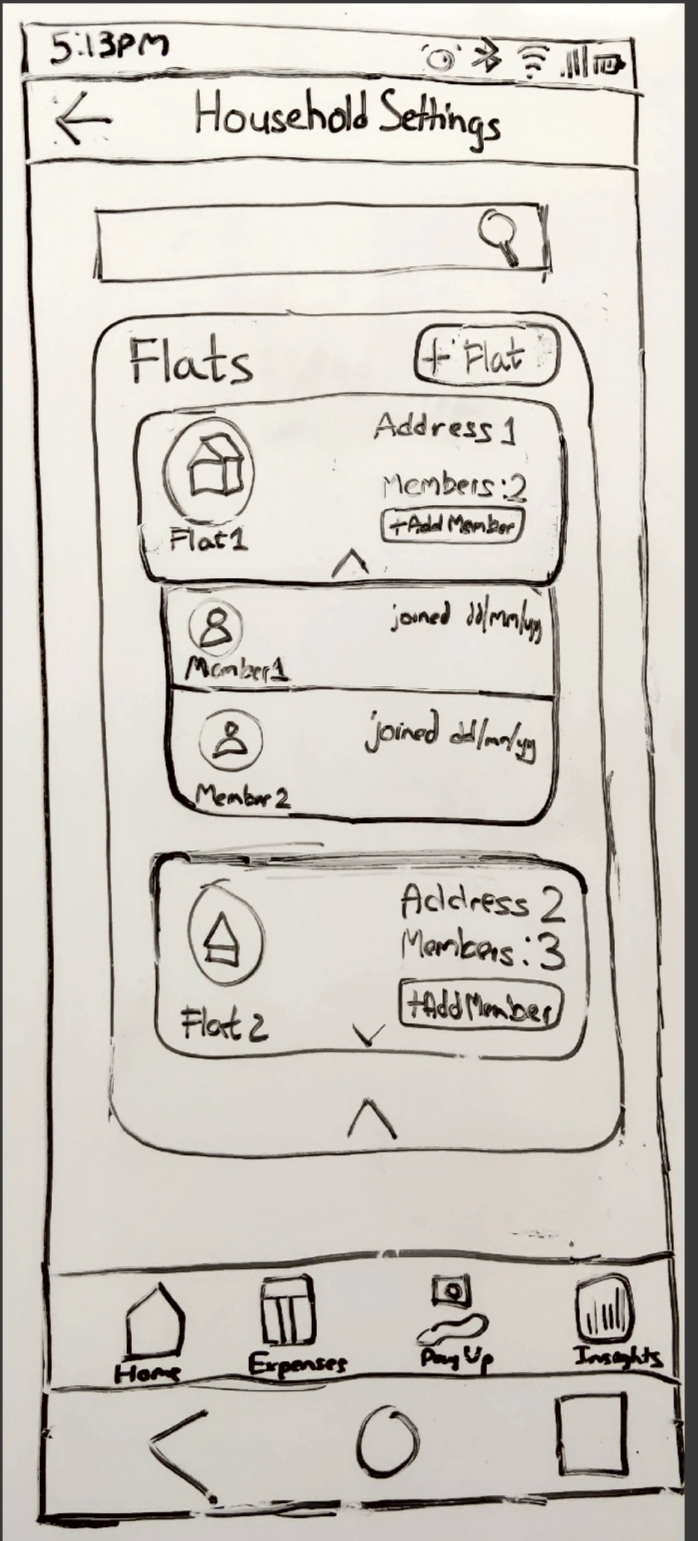 5:13PM
Household Settings
Flats
+ Flat
Address 1
Members:2
+Add Member
Flat1
joined dd/mm/yy
Member1
joined dd/mm/yy
Member2
Address 2
Members:3
+Add Member
Flat 2
Home Expenses Pay Up Insights